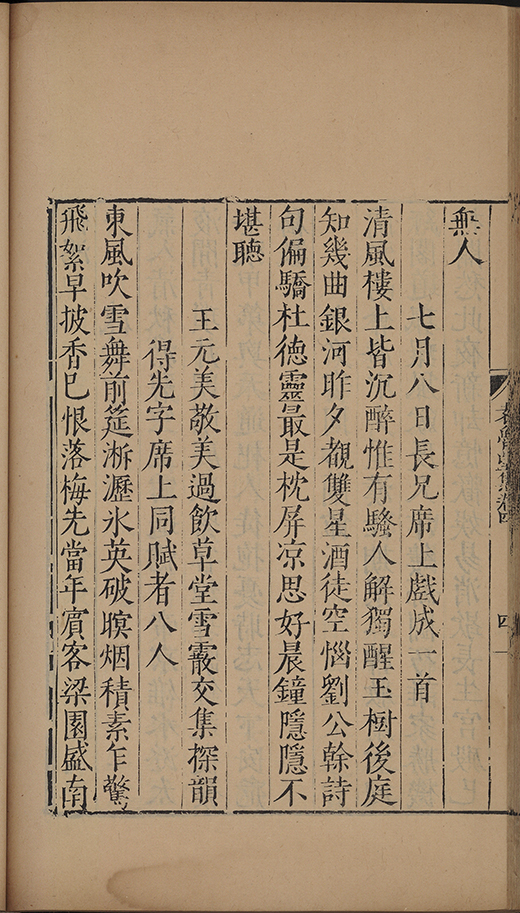 無人
七月八日長兄席上戲成一首
清風樓上皆沉醉惟有騷人解獨醒玉樹後庭
知幾曲銀河昨夕覩雙星酒徒空惱劉公幹詩
句偏驕杜德靈最是枕屏凉思好晨鐘隱隱不
堪聽
王元美敬美過飲草堂雪霰交集探韻
得先字席上同賦者八人
東風吹雪舞前筵淅瀝氷英破暝烟積素乍驚
飛絮早披香巳恨落梅先當年賓客梁園盛南